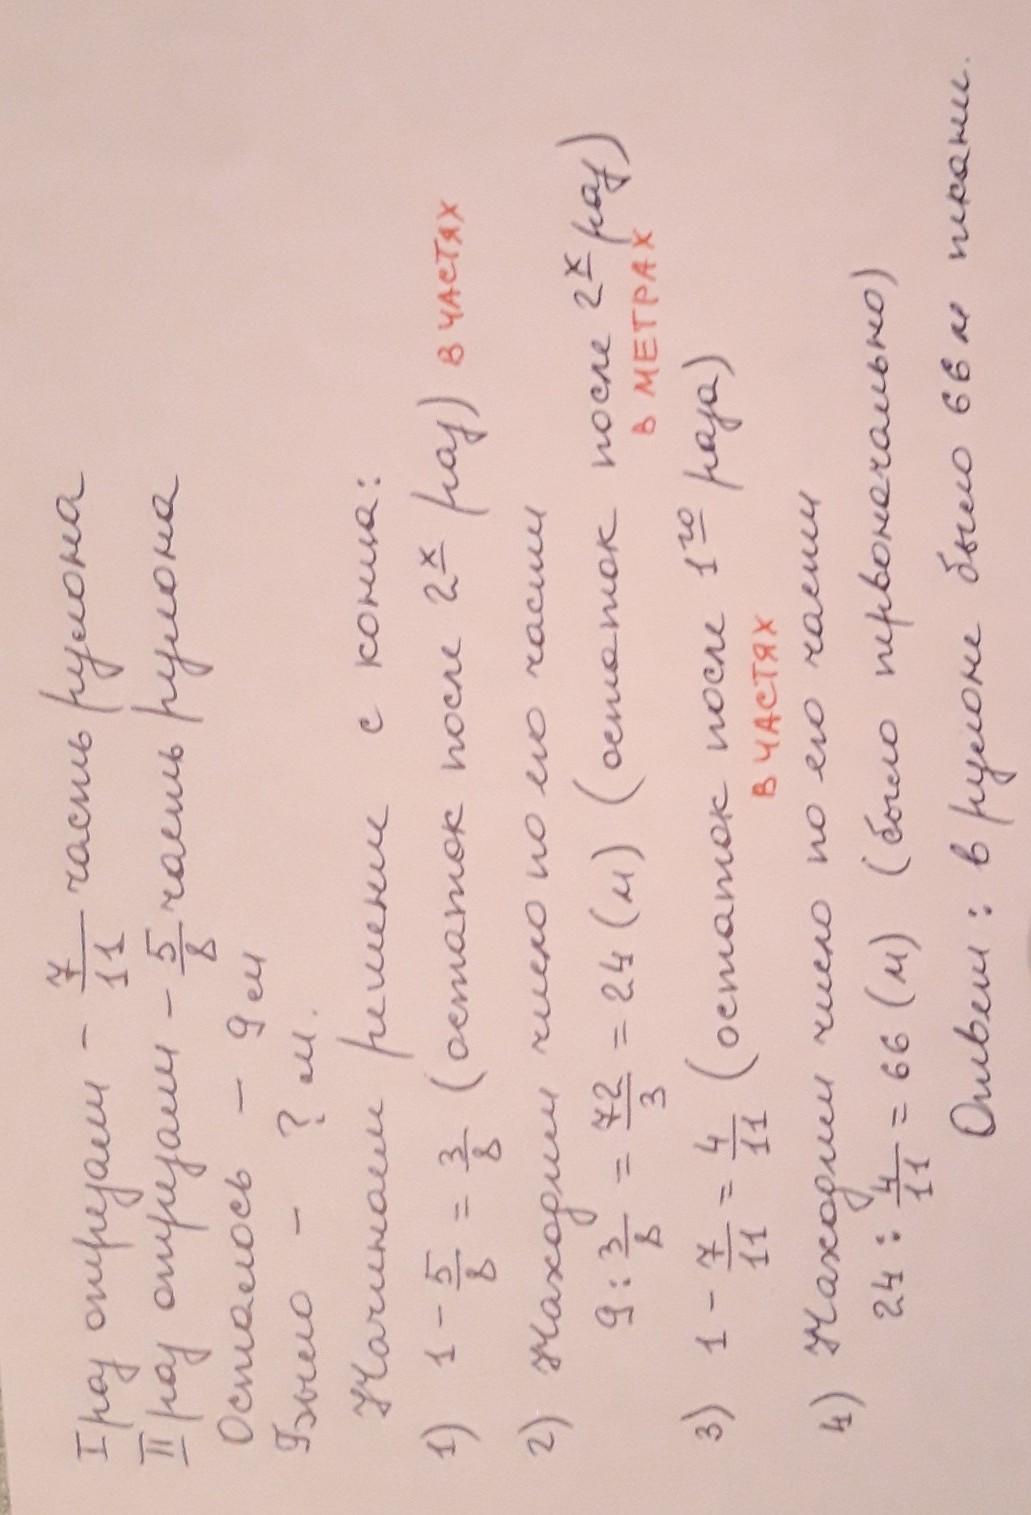 I раз отрезали - 7/11 часть рулона
II раз отрезали - 5/8 часть рулона
Осталось - 9 м
Было - ? м.
Начинаем решение с конца:
1) 1 - 5/8 = 3/8 (остаток после 2х раз) В ЧАСТЯХ
2) Находим число по его части
9 : 3/8 = 72/3 = 24 (м) (остаток после 2х раз)
В МЕТРАХ
3) 1 - 7/11 = 4/11 (остаток после 1го раза)
В ЧАСТЯХ
4) Находим число по его части
24 : 4/11 = 66 (м) (было первоначально)
Ответ: в рулоне было 66 м ткани.